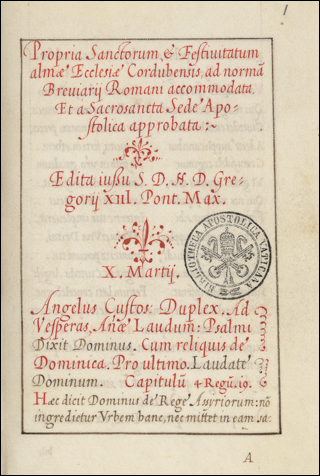 1
Propria Sanctorum, & Festiuitatum
almæ Ecclesiæ Cordubensis, ad normã
Breuiarij Romani accommodata,
Et a Sacrosancta Sede Apo-
stolica approbata:~
Edita iussu S. D. N. D. Gre-
gorij XIII. Pont. Max.
BIBLIOTHECA APOSTOLICA VATICANA
X. Martij.
Angelus Custos: Duplex. Ad
Vesperas, Anæ Laudum: Psalmi
Dixit Dominus. Cum reliquis de
Dominica. Pro ultimo. Laudate
Dominum. Capitulũ 4 Regũ. 19.
Hæc dicit Dominus de Rege Assyriorum: nõ
ingredietur Vrbem hanc, nec mittet in eam sa:
A